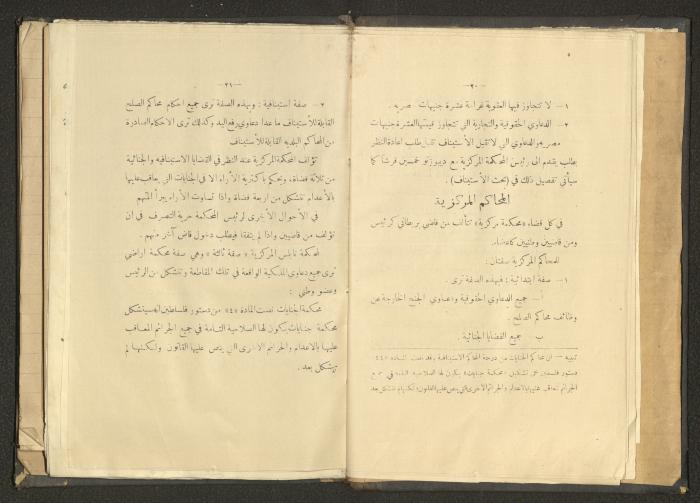 — ٢٠ —
١ — لا تتجاوز فيها العقوبة لغرامة عشرة جنيهات مصريه .
٢ — الدعاوي الحقوقية والتجارية التي تتجاوز قيمتها العشرة جنيهات
مصريه والدعاوي التي لا تقبل الاستئناف تقبل طلب اعادة النظر
بطلب يقدم الى رئيس المحكمة المركزية مع ديبوزتو خمسين قرشا كما
سيأتي تفصيل ذلك في (بحث الاستئناف) .
المحاكم المركزية
في كل قضاء «محكمة مركزية» تتألف من قاضي بريطاني كرئيس
ومن قاضيين وطنيين كاعضاء .
للمحاكم المركزية صفتان :
١ — صفة ابتدائية : فبهذه الصفة ترى .
أ — جميع الدعاوي الحقوقية ودعاوي الجنح الخارجة عن
وظائف محاكم الصلح .
ب — جميع القضايا الجنائية .
تنبيه — ان محاكم الجنايات من درجة المحاكم الاستينافية وقد نصت المادة «٤٤»
دستور فلسطين على تشكيل «محكمة جنايات» يكون لها الصلاحية التامة في جميع
الجرائم المعاقب عليها بالاعدام والجرائم الاخرى التي ينص عليها القانون ؛ لكنها لم تتشكل بعد
— ٢١ —
٢ — صفة استينافية : وبهذه الصفة ترى جميع احكام محاكم الصلح
القابلة للأستيناف ما عدا دعاوي رفع اليد وكذلك ترى الاحكام الصادرة
من المحاكم البلدية القابلة للأستيناف
تؤلف المحكمة المركزية عند النظر في القضايا الاستينافيه والجنائية
من ثلاثة قضاة، وتحكم باكثرية الأراء الا في الجنايات التي يعاقب عليها
بالأعدام فتتشكل من اربعة قضاة واذا تساوت الأراء يبرأ المتهم
في الأحوال الأخرى لرئيس المحكمة حرية التصرف في ان
تؤلف من قاضيين واذا لم يتفقا فيطلب دخول قاض آخر معهم .
لمحكمة نابلس المركزية «صفة ثالثة» وهي صفة محكمة اراضي
ترى جميع دعاوي الملكية الواقعة في تلك المقاطعة وتتشكل من الرئيس
وعضو وطني :
محكمة الجنايات نصت المادة «٤٤» من دستور فلسطين انه سيتشكل
محكمة جنايات يكون لها الصلاحية التامة في جميع الجرائم المعاقب
عليها بالاعدام والجرائم الاخرى التي ينص عليها القانون ولكنها لم
تتشكل بعد .